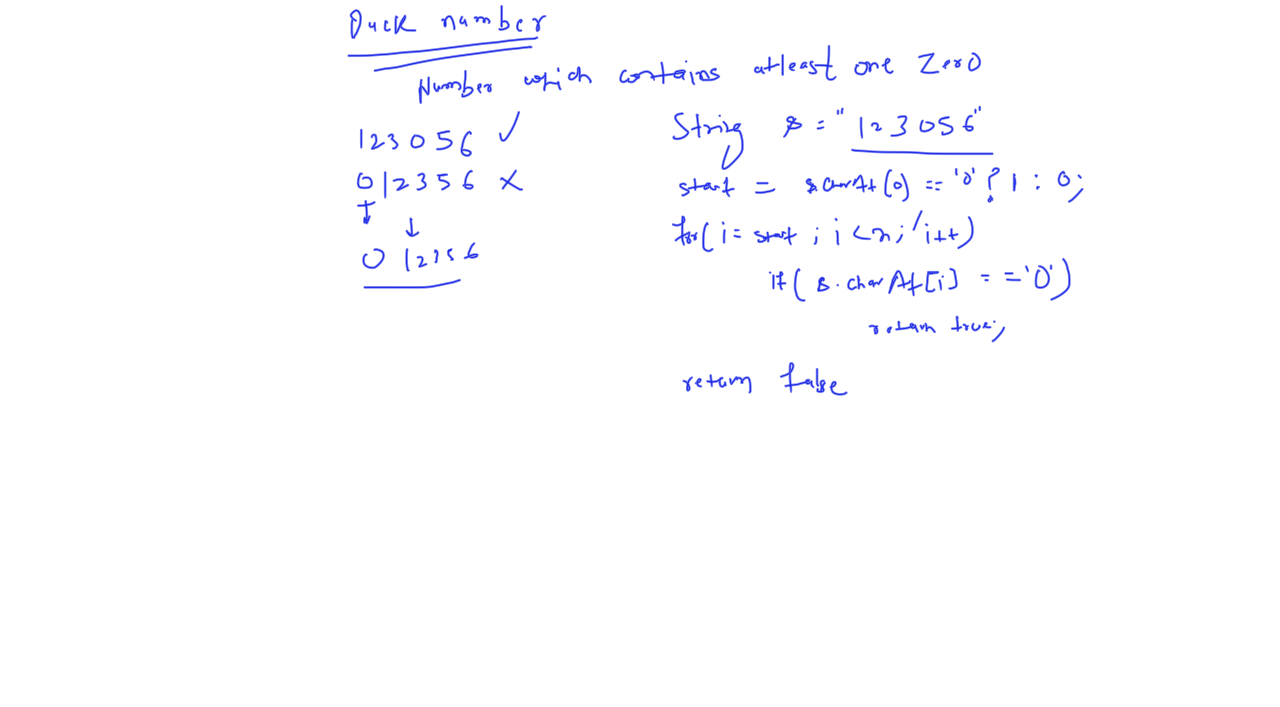 Duck number
Number which contains atleast one Zero
123056 ✓
012356 X
0 12356
String s = "123056"
start = s.charAt(0) == '0' ? 1 : 0;
for( i = start ; i < n ; i++)
if( s.charAt[i] == '0')
return true;
return false